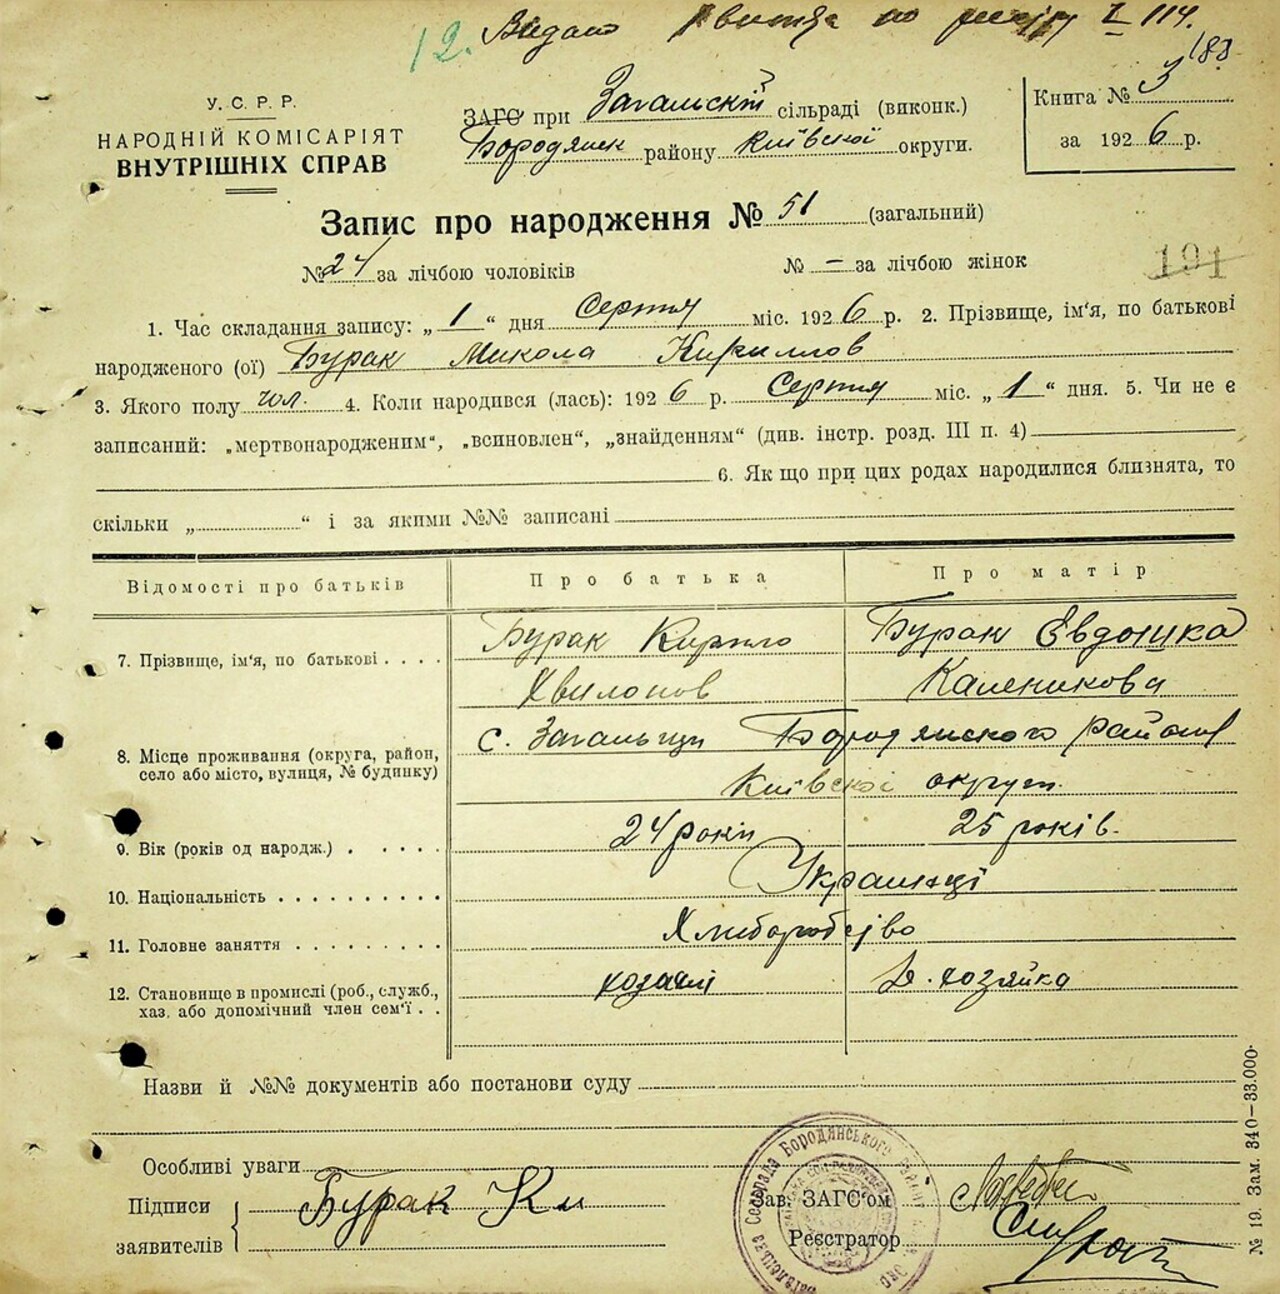 12. Видано по реєстру I 114.
183
У.С.Р.Р.
НАРОДНІЙ КОМІСАРІЯТ
ВНУТРІШНІХ СПРАВ
ЗАГС при Загальскій сільраді (виконк.)
Бородянск району Київскої округи.
Книга № 3
за 1926 р.
Запис про народження № 51 (загальний)
№ 24 за лічбою чоловіків № — за лічбою жінок
191
1. Час складання запису: „1“ дня Серпня міс. 1926 р. 2. Прізвище, ім'я, по батькові
народженого (ої) Бурак Микола Кириллов
3. Якого полу чол. 4. Коли народився (лась): 1926 р. Серпня міс. „1“ дня. 5. Чи не є
записаний: „мертвонародженим“, „всиновлен“, „знайденням“ (див. інстр. розд. III п. 4)
6. Як що при цих родах народилися близнята, то
скільки „ “ і за якими №№ записані
Відомості про батьків Про батька Про матір
7. Прізвище, ім'я, по батькові . . . . Бурак Кирило Бурак Евдошка
Хвилонов Каленикова
8. Місце проживання (округа, район, с. Загальци Бородянского району
село або місто, вулиця, № будинку) Київскої округи.
9. Вік (років од народж.) . . . . . 24 роки 25 років.
10. Національність . . . . . . . . . . Українці
11. Головне заняття . . . . . . . . . Хлиборобство
12. Становище в промислі (роб., служб., хозяїн Д. хозяйка
хаз. або допомічний член сем'ї . .
Назви й №№ документів або постанови суду
Особливі уваги
Підписи Бурак Ки
заявителів
Зав. ЗАГС'ом
Реєстратор
Сельрада Бородянського район
№ 19. Зам. 340—33.000.